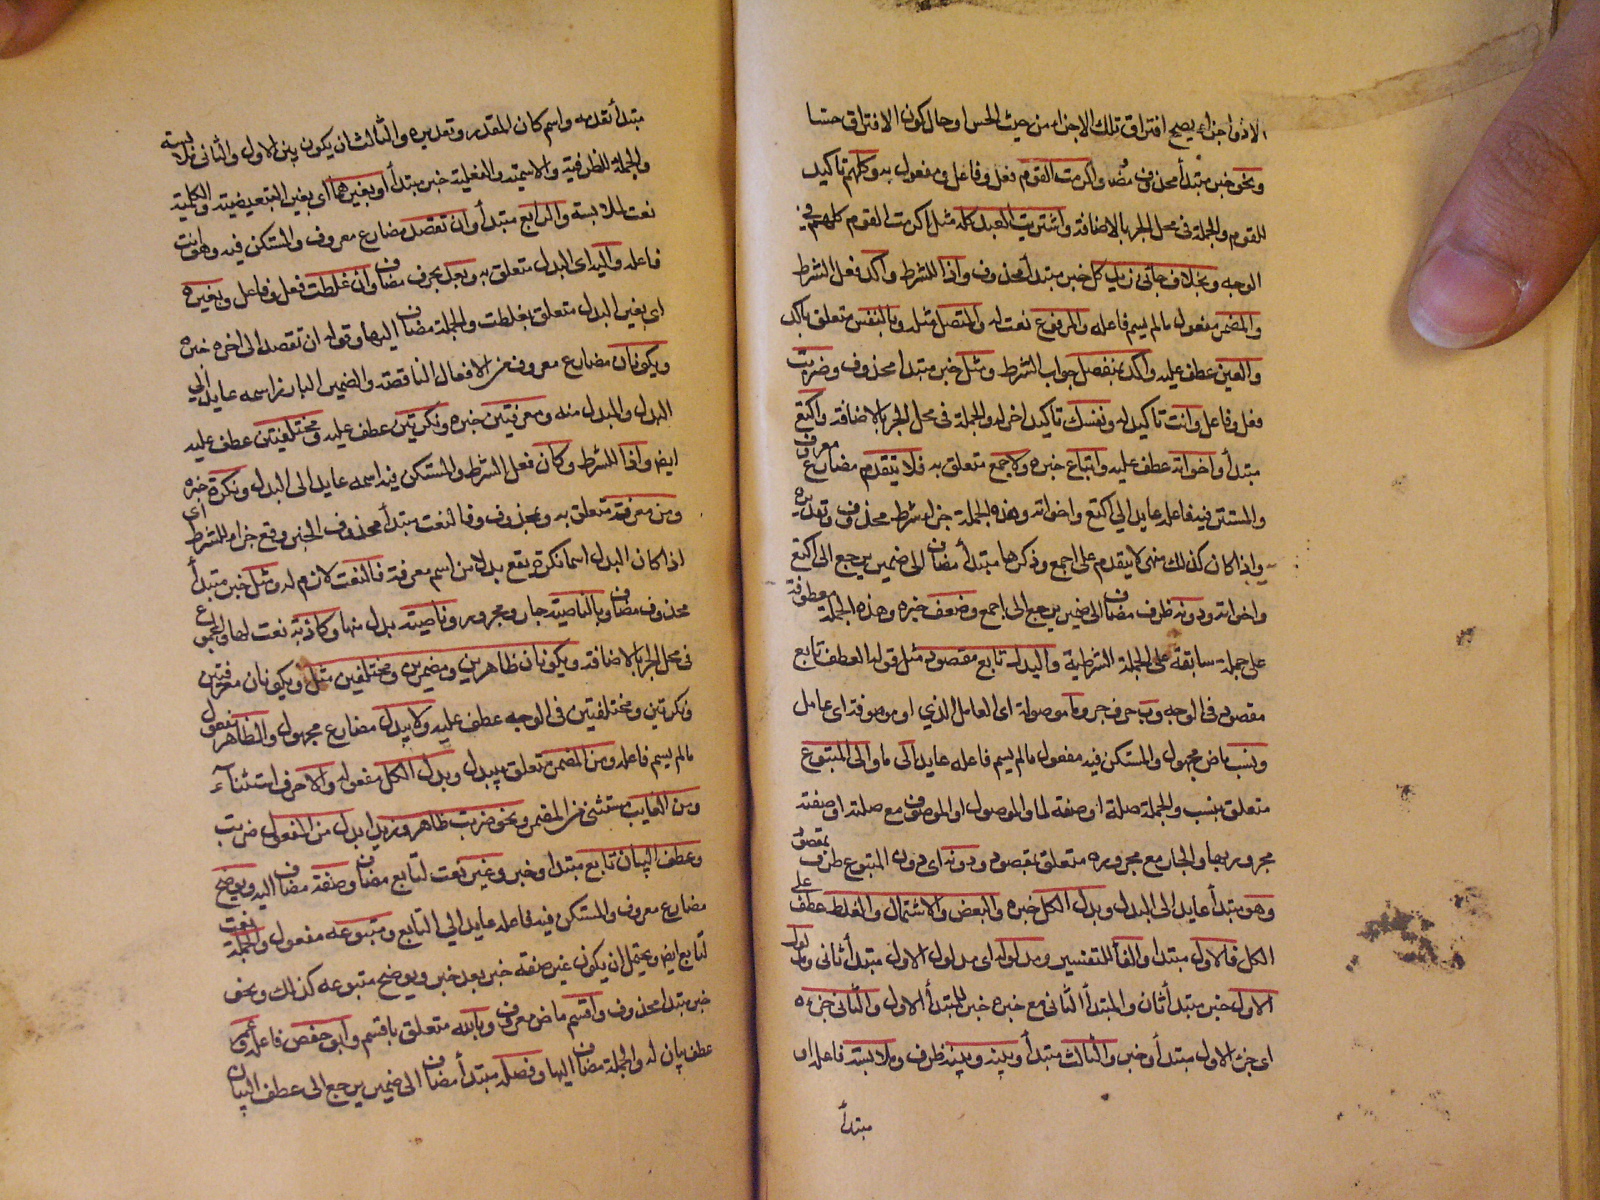 الا ذو اجزاء يصح افتراق تلك الاجزاء من حيث الحس او حال كون الافتراق حسا
ونحو خبر مبتدأ محذوف مضا واكرمت القوم فعل وفاعل ومفعول به وكلهم تاكيد
للقوم والجملة فى محل الجر بالاضافة واشتريت العبد كله مثل اكرمت القوم كلهم فى
الوجه وبخلاف جانى زيد كل خبر مبتدأ محذوف واذا للشرط واكد فعل الشرط
والمضمر مفعول مالم يسم فاعله والمرفوع نعت له والمتصل مثله وبالنفس متعلق باكد
والعين عطف عليه واكد بمنفصل جواب الشرط ومثل خبر مبتدأ محذوف وضربت
فعل وفاعل وانت تاكيد له ونفسك تاكيد اخر له والجملة فى محل الجر بالاضافة واكتع
مبتدأ واخواته عطف عليه واتباع خبره ولاجمع متعلق به فلا يتقدم مضارع معروف
والمستتر فيه فاعله عايد الى اكتع واخواته وهذه الجملة جزاء شرط محذوف وتقديره
واذا كان كذلك منهى لا يتقدم على اجمع وذكرها مبتدأ مضاف الى ضمير يرجع الى اكتع
واخواته ودونه ظرف مضاف الى ضمير يرجع الى اجمع وضعف خبره وهذه الجملة معطوفة
على جملة سابقة على الجملة الشرطية والبدل تابع مقصود مثل قوله العطف تابع
مقصود فى الوجه وب حرف جر وما موصولة اى العامل الذي او موصوفة اى عامل
ونسب ماض مجهول والمستكن فيه مفعول مالم يسم فاعله عايد الى ما والى المتبوع
متعلق بنسب والجملة صلة او صفة لما والموصول او الموصوف مع صلته او صفته
مجرور بها والجار مع مجروره متعلق بمقصود ودونه اى دون المتبوع ظرف بمقصود
وهو مبتدأ عايد الى البدل وبدل الكل خبره والبعض والاشتمال والغلط عطف على
الكل فالاول مبتدا والفا للتفسير ومدلوله اى مدلول الاول مبتدأ ثانى ومدلول
الاول خبر مبتدأ ثان والمبتدأ الثانى مع خبره خبر للمبتدأ الاول والثانى جزءه
اى جزء الاول مبتدأ وخبر والثالث مبتدأ وبينه وبينه ظرف وملابسة فاعله او
مبتدأ
مبتدأ تقدمه واسم كان المقدر وتقديره والثالث ان يكون بين الاول والثانى ملابسة
والجملة الظرفية والاسمية والفعلية خبر مبتدأ او بغيرهما اى بغير البعضية والكلية
نعت للملابسة والرابع مبتدأ وان تقصد مضارع معروف والمستكن فيه وهو انت
فاعله واليه اى البدل متعلق به وبعد بحرف مضاف وان غلطت فعل وفاعل وبغيره
اى بغير البدل متعلق بغلطت والجملة مضاف اليها وقوله ان تقصد الى اخره خبره
ويكونان مضارع معروف من الافعال الناقصة والضمير البارز اسمه عايد الى
البدل والمبدل منه ومعرفتين خبره ونكرتين عطف عليه ومختلفتين عطف عليه
ايض واذا للشرط وكان فعل الشرط والمستكن فيه اسمه عايد الى البدل ونكرة خبره
ومن معرفة متعلق به وبمحذوف وفالنعت مبتدأ محذوف الخبر وقع جزاء للشرط اى
اذا كان البدل اسما نكرة يقع بدلا من اسم معرفة فالنعت لازم له ومثل خبر مبتدأ
محذوف مضاف وبالناصية جار ومجرور وناصية بدل منها وكاذبة نعت لها والمجموع
فى محل الجر بالاضافة ويكونان ظاهرين ومضمرين ومختلفين مثل ويكونان معرفتين
ونكرتين ومختلفتين فى الوجه عطف عليه ولا يبدل مضارع مجهول والظاهر مفعول
مالم يسم فاعله ومن المضمر متعلق بيبدل وبدل الكل مفعوله والا حرف استثناء
ومن الغايب مستثنى من المضمر ونحو ضربت ظاهر وزيدا بدل من المفعول ضربت
وعطف البيان تابع مبتدا وخبر وغير نعت لتابع مضاف وصفة مضاف اليه ويوضح
مضارع معروف والمستكن فيه فاعله عايد الى التابع ومتبوعه مفعول والجملة نعت
لتابع ايض ويحتمل ان يكون غير صفة خبر بعد خبر ويوضح متبوعه كذلك ونحو
خبر مبتدا محذوف واقسم ماض معروف وبالله متعلق باقسم وابو حفص فاعله وعمر
عطف بيان له والجملة مضاف اليها وفصله مبتدأ مضاف الى ضمير يرجع الى عطف البيان